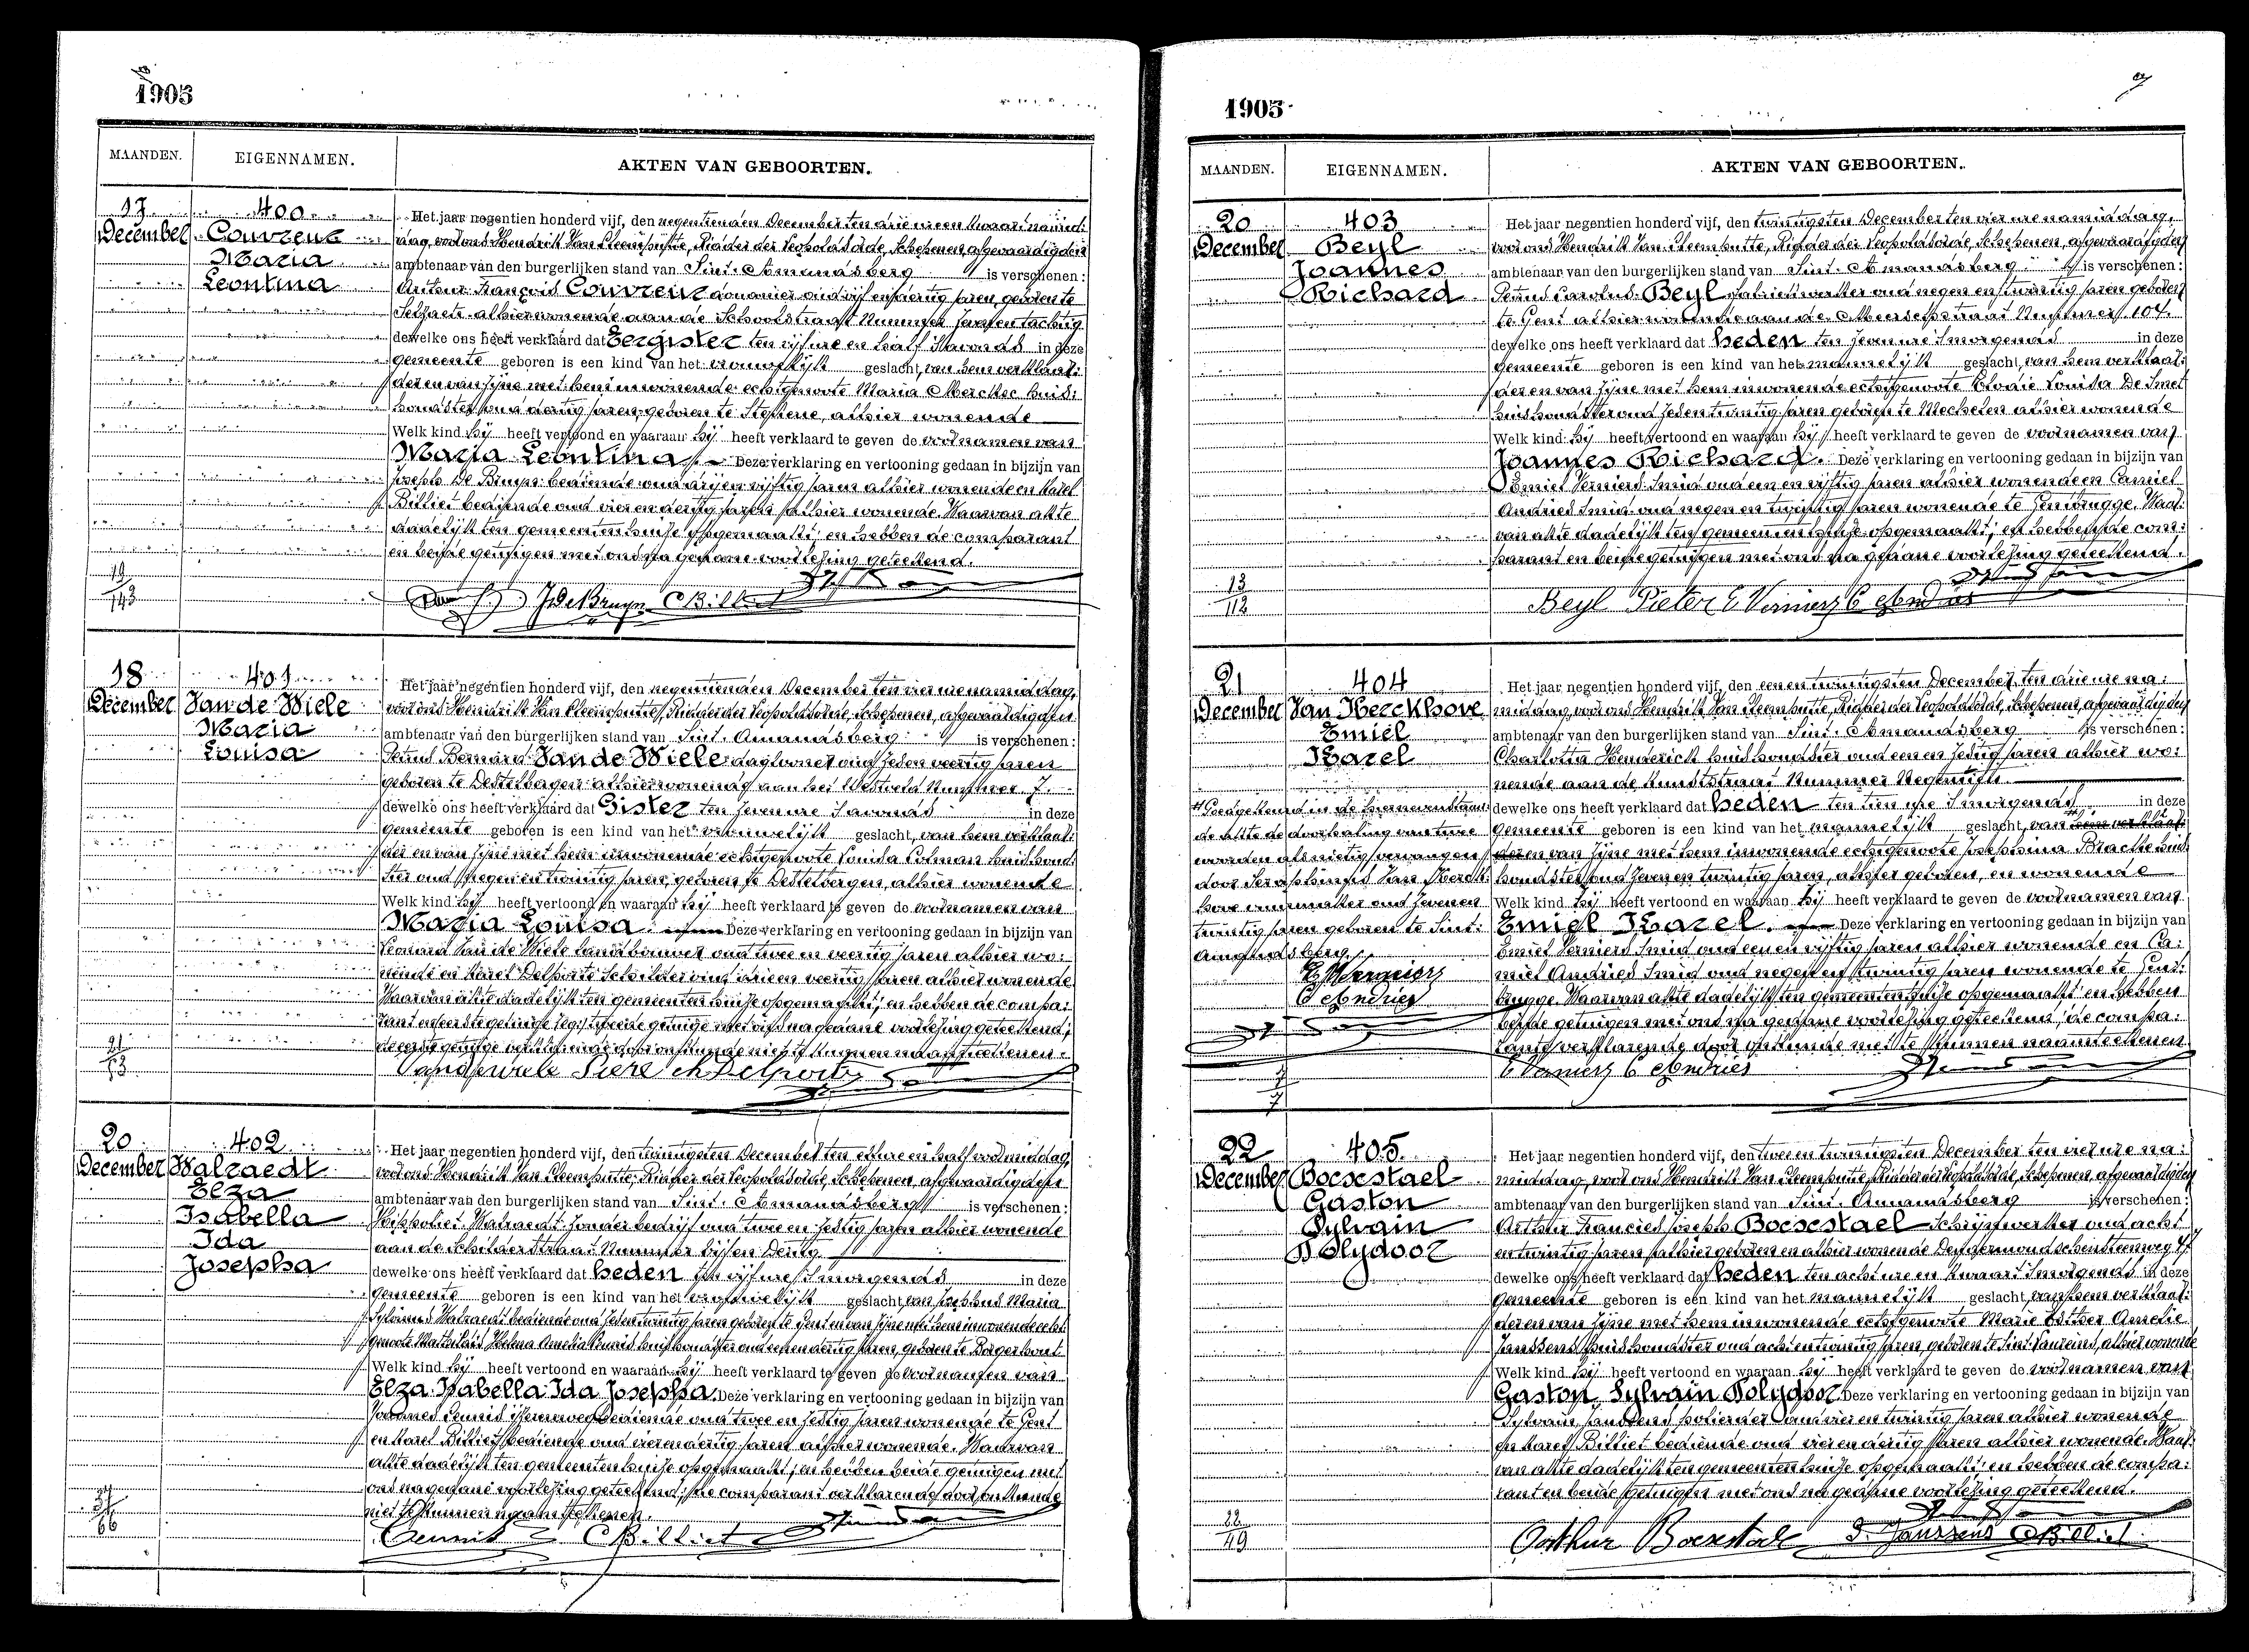 1905
MAANDEN. EIGENNAMEN. AKTEN VAN GEBOORTEN.
17 December
400
Couvreur
Maria
Leontina
Het jaar negentien honderd vijf, den negentienden December ten drie ure en kwaart namid:
dag, voor ons Hendrik Van Kleemputte, Ridder der Leopoldsorde, Schepenen, afgevaardigden
ambtenaar van den burgerlijken stand van Sint. Amandsberg is verschenen:
Arthur François Couvreur douanier oud vijf en dertig jaren, geboren te
Selzaete alhier wonende aan de Schoolstraat Nummer
dewelke ons heeft verklaard dat Eergister ten vijf ure en half 's avonds in deze
gemeente geboren is een kind van het vrouwelijk geslacht, van hem verklaar:
der en van zijne met hem inwonende echtgenoote Maria Merckx huis:
houdster oud dertig jaren, geboren te Stekene, alhier wonende
Welk kind hij heeft vertoond en waaraan hij heeft verklaard te geven de voornamen van
Maria Leontina. Deze verklaring en vertooning gedaan in bijzijn van
Joseph De Bruyn bediende oud drij en vijftig jaren alhier wonende en Karel
Billiet bediende oud vier en dertig jaren alhier wonende. Waarvan akte
dadelijk ten gemeenten huize opgemaakt; en hebben de comparant
en beide getuigen met ons na gedane voorlezing geteekend.
19
143
J De Bruyn C Billiet
18 December
401
Van de Wiele
Maria
Louisa
Het jaar negentien honderd vijf, den negentienden December ten vier ure namiddag,
voor ons Hendrik Van Kleemputte, Ridder der Leopoldsorde, Schepenen, afgevaardigden
ambtenaar van den burgerlijken stand van Sint. Amandsberg is verschenen:
Petrus Bernard Van de Wiele dagloner oud zeven veertig jaren
geboren te Destelbergen alhier wonende aan het Westveld Nummer 7.
dewelke ons heeft verklaard dat Gister ten zeven ure 's avonds in deze
gemeente geboren is een kind van het vrouwelijk geslacht, van hem verklaar:
der en van zijne met hem inwonende echtgenoote Louisa Colman huishoud:
ster oud negen en twintig jaren, geboren te Destelbergen, alhier wonende
Welk kind hij heeft vertoond en waaraan hij heeft verklaard te geven de voornamen van
Maria Louisa. Deze verklaring en vertooning gedaan in bijzijn van
Leonard Van de Wiele landbouwer oud twee en veertig jaren alhier wo:
nende en Karel Delporte Schilder oud drie en veertig jaren alhier wonende
Waarvan akte dadelijk ten gemeenten huize opgemaakt; en hebben de compa:
rant en
21
73
20 December
402
Walraedt
Elza
Isabella
Ida
Josepha
Het jaar negentien honderd vijf, den twintigsten December ten elf ure en half voormiddag,
voor ons Hendrik Van Kleemputte, Ridder der Leopoldsorde, Schepenen, afgevaardigden
ambtenaar van den burgerlijken stand van Sint. Amandsberg is verschenen:
Hippoliet Walraedt zonder bedrijf oud twee en zestig jaren alhier wonende
aan de Schilderstraat Nummer Vijf en Dertig
dewelke ons heeft verklaard dat heden ten vijf ure 's morgends in deze
gemeente geboren is een kind van het vrouwelijk geslacht, van Josephus Maria
Sylvinus Walraedt bediende oud zeven twintig jaren geboren te Gent en van zijne met hem inwonende echt:
genoote Mathildis Helena Amelia Teunis huishoudster oud een en dertig jaren, geboren te Borgerhout
Welk kind hij heeft vertoond en waaraan hij heeft verklaard te geven de voornamen van
Elza Isabella Ida Josepha. Deze verklaring en vertooning gedaan in bijzijn van
Joannes Teunis ijzerenweg bediende oud twee en zestig jaren wonende te Gent
en Karel Billiet bediende oud vier en dertig jaren alhier wonende. Waarvan
akte dadelijk ten gemeenten huize opgemaakt; en hebben beide getuigen met
ons na gedane voorlezing geteekend; de comparant verklarende door onkunde
niet te kunnen naamteekenen.
66
Teunis C Billiet
1905
MAANDEN. EIGENNAMEN. AKTEN VAN GEBOORTEN.
20 December
403
Beyl
Joannes
Richard
Het jaar negentien honderd vijf, den twintigsten December ten vier ure namiddag,
voor ons Hendrik Van Kleemputte, Ridder der Leopoldsorde, Schepenen, afgevaardigden
ambtenaar van den burgerlijken stand van Sint. Amandsberg is verschenen:
Petrus Carolus Beyl fabriekwerker oud negen en twintig jaren geboren
te Gent alhier wonende aan de Meerselstraat Nummer 104.
dewelke ons heeft verklaard dat heden ten zeven ure 's morgends in deze
gemeente geboren is een kind van het mannelijk geslacht, van hem verklaar:
der en van zijne met hem inwonende echtgenoote Elodie Louisa De Smet
huishoudster oud zeven twintig jaren geboren te Mechelen alhier wonende
Welk kind hij heeft vertoond en waaraan hij heeft verklaard te geven de voornamen van
Joannes Richard. Deze verklaring en vertooning gedaan in bijzijn van
Emiel Verniers Smid oud een en vijftig jaren alhier wonende en Camiel
Andries Smid oud negen en twintig jaren wonende te Gentbrugge. Waar:
van akte dadelijk ten gemeenten huize opgemaakt; en hebben de com:
parant en beide getuigen met ons na gedane voorlezing geteekend.
13
112
Beyl Pieter E Verniers C Andries
21 December
404
Van Herckhove
Emiel
Karel
Het jaar negentien honderd vijf, den een en twintigsten December ten drie ure na:
middag, voor ons Hendrik Van Kleemputte, Ridder der Leopoldsorde, Schepenen, afgevaardigden
ambtenaar van den burgerlijken stand van Sint. Amandsberg is verschenen:
Charlotta Hendericht huishoudster oud een en zestig jaren alhier wo:
nende aan de Kunststraat Nummer Negentien.
dewelke ons heeft verklaard dat heden ten tien ure 's morgends in deze
gemeente geboren is een kind van het mannelijk geslacht, van hem verklaar:
der en van zijne met hem inwonende echtgenoote Josephina Bracke huis:
houdster oud zeven en twintig jaren, alhier geboren, en wonende
Welk kind hij heeft vertoond en waaraan hij heeft verklaard te geven de voornamen van
Emiel Karel. Deze verklaring en vertooning gedaan in bijzijn van
Emiel Verniers Smid oud een en vijftig jaren alhier wonende en Ca:
miel Andries Smid oud negen en twintig jaren wonende te Gent:
brugge. Waarvan akte dadelijk ten gemeenten huize opgemaakt en hebben
beide getuigen met ons na gedane voorlezing geteekend, de compa:
rante verklarende door onkunde niet te kunnen naamteekenen
Goedgekeurd in de hiernevenstaan:
de akte de doorhaling van twee
woorden als nietig vervangen
door Seraphinus Van Herck:
hove oud zeven en
twintig jaren geboren te Sint:
Amandsberg.
E Verniers
C Andries
7
E Verniers C Andries
22 December
405
Boesestael
Gaston
Sylvain
Polydoor
Het jaar negentien honderd vijf, den twee en twintigsten December ten vier ure na:
middag, voor ons Hendrik Van Kleemputte, Ridder der Leopoldsorde, Schepenen, afgevaardigden
ambtenaar van den burgerlijken stand van Sint. Amandsberg is verschenen:
Arthur Francies Joseph Boesestael Schrijnwerker oud acht
en twintig jaren, alhier geboren en alhier wonende Dendermondschensteenweg 47.
dewelke ons heeft verklaard dat heden ten acht ure en kwaart 's morgends in deze
gemeente geboren is een kind van het mannelijk geslacht, van hem verklaar:
der en van zijne met hem inwonende echtgenoote Marie Esther Amelie
Janssens huishoudster oud acht en twintig jaren, geboren te Sint. Laureins, alhier wonende
Welk kind hij heeft vertoond en waaraan hij heeft verklaard te geven de voornamen van
Gaston Sylvain Polydoor. Deze verklaring en vertooning gedaan in bijzijn van
Sylvain Janssens oud vier en twintig jaren alhier wonende
en Karel Billiet bediende oud vier en dertig jaren alhier wonende. Waar:
van akte dadelijk ten gemeenten huize opgemaakt; en hebben de compa:
rant en beide getuigen met ons na gedane voorlezing geteekend.
22
49
Arthur Boesestael S. Janssens C Billiet